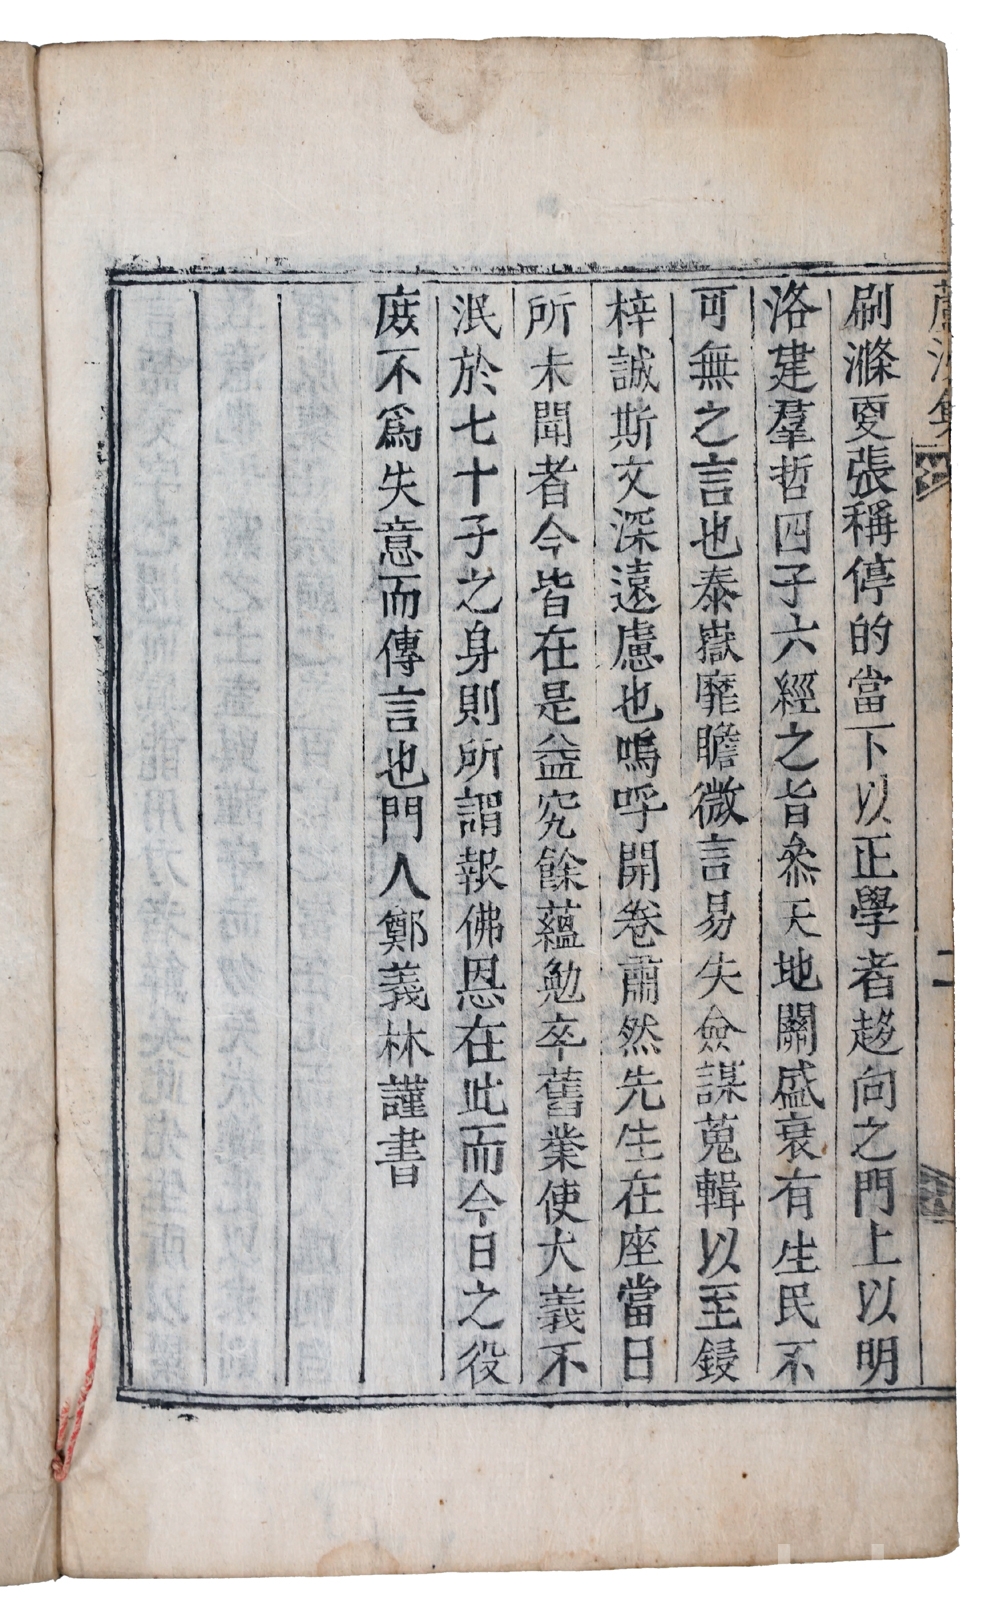 蘆沙集
二
刷滌更張稱停的當下以正學者趍向之門上以明
洛建羣哲四子六經之旨叅天地關盛衰有生民不
可無之言也泰嶽靡瞻微言易失僉謀蒐輯以至鋟
梓誠斯文深遠慮也嗚呼開卷肅然先生在座當日
所未聞者今皆在是益究餘蘊勉卒舊業使大義不
泯於七十子之身則所謂報佛恩在此而今日之役
庶不爲失意而傳言也門人鄭義林謹書